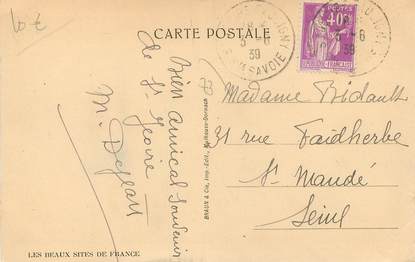 10 €
CARTE POSTALE
5 - 6
39
Hte SAVOIE
POSTES
40c
RÉPUBLIQUE FRANÇAISE
- 6
39
Bien amical souvenir
de St Jeoire
M. Dejean
BRAUN & Cie, Imp.-Édit., Mulhouse-Dornach
Madame Bidault
31 rue Faidherbe
St Mandé
Seine
LES BEAUX SITES DE FRANCE